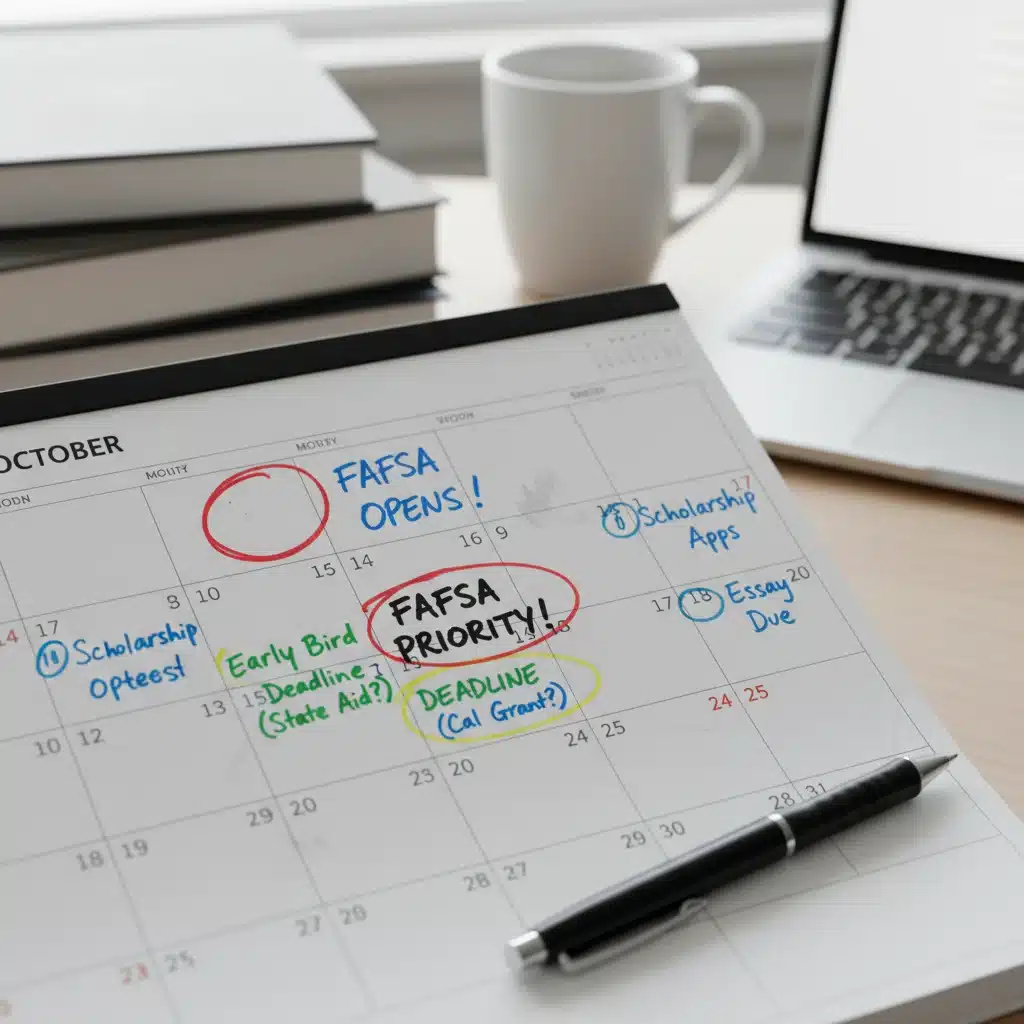 OCTOBER
MOUTY
MOTIEY
FAFSA
OPENS!
17
Scholarship
Apps
15 14
16 9
8 10
FAFSA
PRIORITY!
17 18
Essay
Due
20
14 17
Scholarship
Opteest
Early Bird
Deadline
(State Aid?)
DEADLINE
(Cal Grant?)
13 15
10 12
24 25
24 25
23 20
29 20
18 19
28 31
29 30
28 27
27 28
23 25